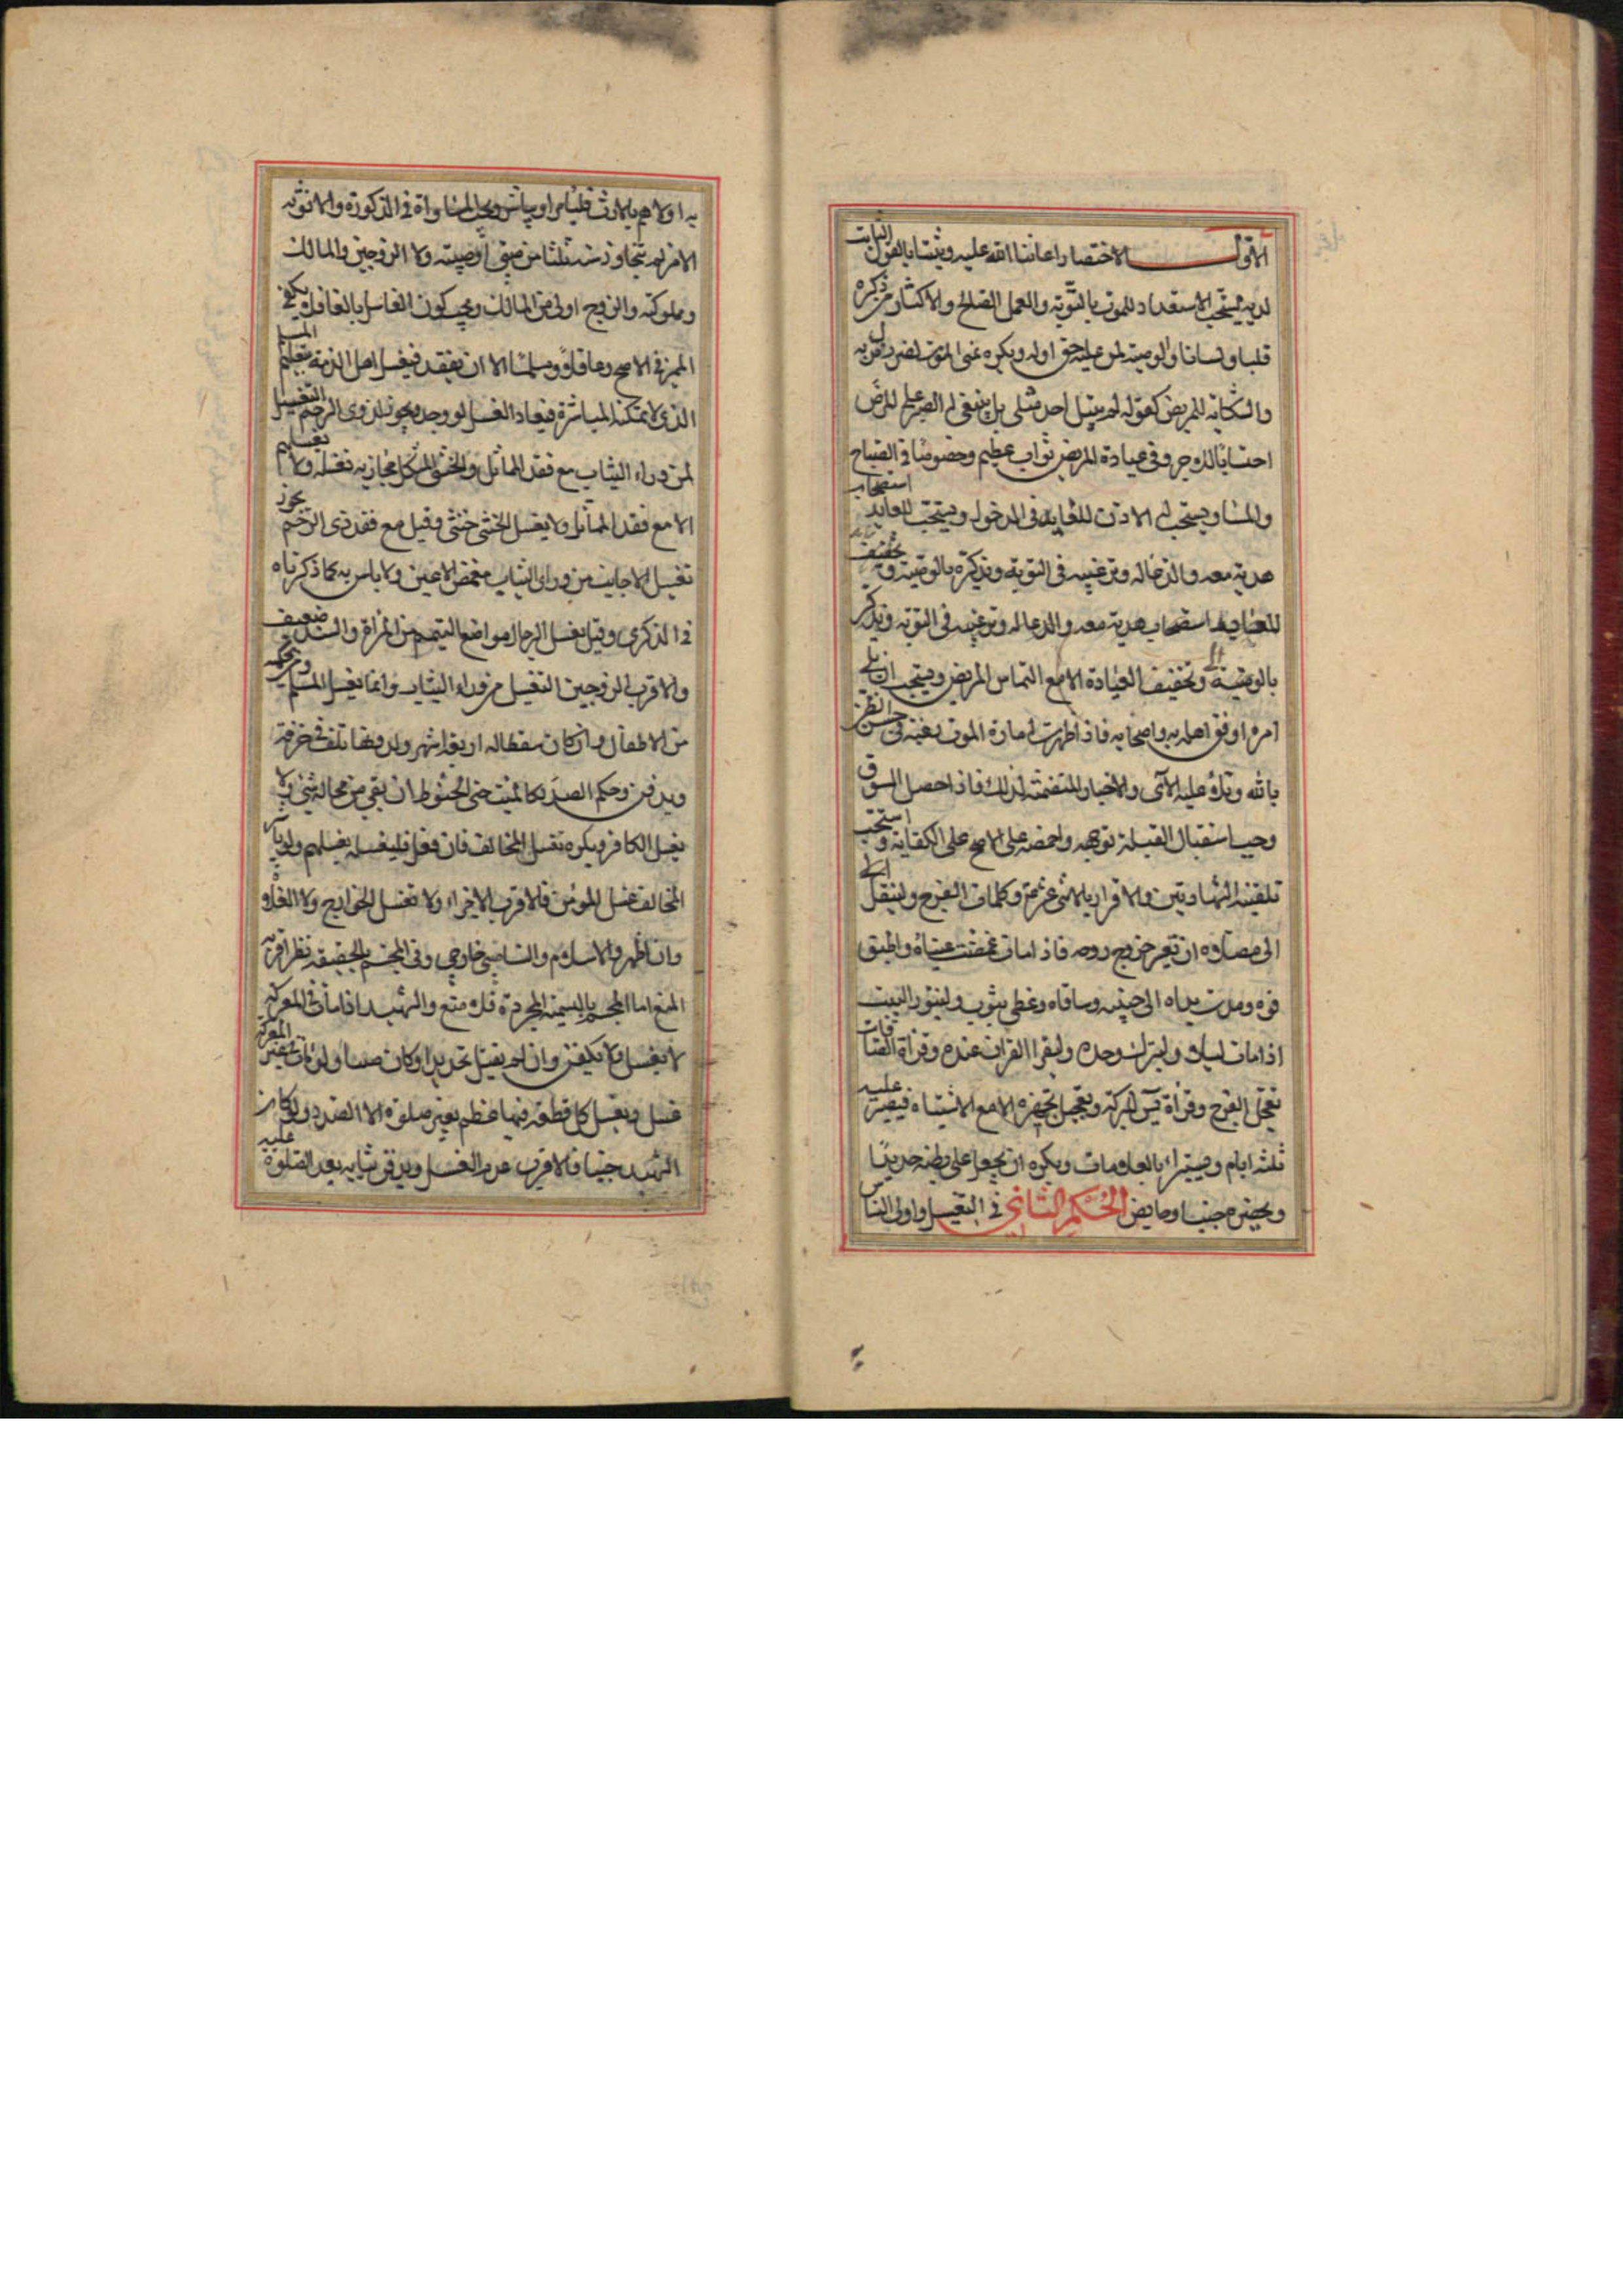 الاول الاختصار اعاننا الله عليه وثبتنا بالقول الثابت
لديه يستحب الاستعداد للموت بالتوبة والعمل الصالح والاكثار من ذكره
قلبا ولسانا والوصية لمن عليه حق اوله ويكره تمنى الموت لضر نزل به
والشكاية للمريض كقوله لم يبتل احد مثلى بل ينبغى له الصبر على المرض
احتسابا للاجر وفى عيادة المريض ثواب عظيم وخصوصا فى الصباح
والمساء ويستحب له الاذن للعايد فى الدخول ويستحب للعايد استصحاب
هدية معه والدعا له وترغيبه فى التوبة وتذكره بالوصية وتخفيف
للعيادة استصحاب هدية معه والدعا له وترغيبه فى التوبة وتذكر
بالوصية وتخفيف العيادة الا مع التماس المريض ويستحب ان يلى
امره اوفق اهله به واصحابه فاذا ظهرت امارة الموت رغبته فى حسن الظن
بالله وتلاؤ عليه الآى والاخبار المتضمنة لذلك فاذا حصل السوق
وجب استقبال القبلة بوجهه واخمصه على الاصح على الكفاية واستحب
تلقينه الشهادتين والاقرار بالاثنى عشر وكلمات الفرج ولينقل الى
الى مصلاه ان تعسر خروج روحه فاذا مات غمضت عيناه واطبق
فوه ومدت يداه الى جنبيه وساقاه وغطى بثوب ولينور البيت
اذا مات ليلا ولا يترك وحده وليقرا القران عنده وقراة الصافات
تعجل الفرج وقراة يس للبركة وتعجيل تجهيزه الا مع الاشتباه فيصبر عليه
ثلثة ايام ويستبرأ بالعلامات ويكره ان يجعل على بطنه حديدا
ويحضره جنبا وحايض الحكم الثانى فى التغسيل واولى الناس
به اولاهم بالارث ويجب المساواة فى الذكورة والانوثة
الا من لم يتجاوز سنه ثلثا من صبى او صبية ولا الزوجين والمالك
ومملوكته والزوج اولى من المالك ويجب كون الغاسل بالغا فلا يكفى
المميز فى الاصح وعاقلا ومسلما الا ان يفقد فيغسل اهل الذمة بتعليم المسلم
الذى لا يمكنه المباشرة فيعاد الغسل لو وجد ويجوز لذوى الرحم التغسيل
لمن وراء الثياب مع فقد المماثل والخنثى المشكل محارمه تغسله ولا تغسلهم
الا مع فقد المماثل ولا يغسل الخنثى خنثى وقيل مع فقد ذى الرحم يجوز
تغسيل الاجانب من وراى الثياب مغمض الاعين ولا باس به كما ذكرناه
فى الذكرى وقيل يغسل الرجال مواضع التيمم من المراة والسند ضعيف
والاقرب للزوجين التغسيل من وراء الثياب وانما يغسل المسلم ومن بحكمه
من الاطفال وان كان سقطا له اربعة اشهر ولدونها تلف فى خرقة
ويدفن وحكم الصدر كالميت حتى الحنوط ان بقى من محاله شئ ولا
يغسل الكافر ويكره تغسيل المخالف فان فعل فليغسله بغسلهم ولو باشر
المخالف غسل المؤمن فالاقرب الاجزاء ولا تغسل الخوارج ولا الغلاة
وان اظهروا الاسلام والناصبى خارجى وفى المجسم بالحقيقة نظر اقربه
المنع اما المجسم بالتسمية المجردة فلا منع والشهيد اذا مات فى المعركة
لا يغسل ولا يكفن وان لم يقتل بحديد او كان صبيا ولو مات بغير المعركة
غسل ويغسل كل قطعة فيها عظم بغير صلوة الا الصدر ولو كان
الشهيد جنبا فالاقرب عدم الغسل ويدفن بثيابه بعد الصلوة عليه